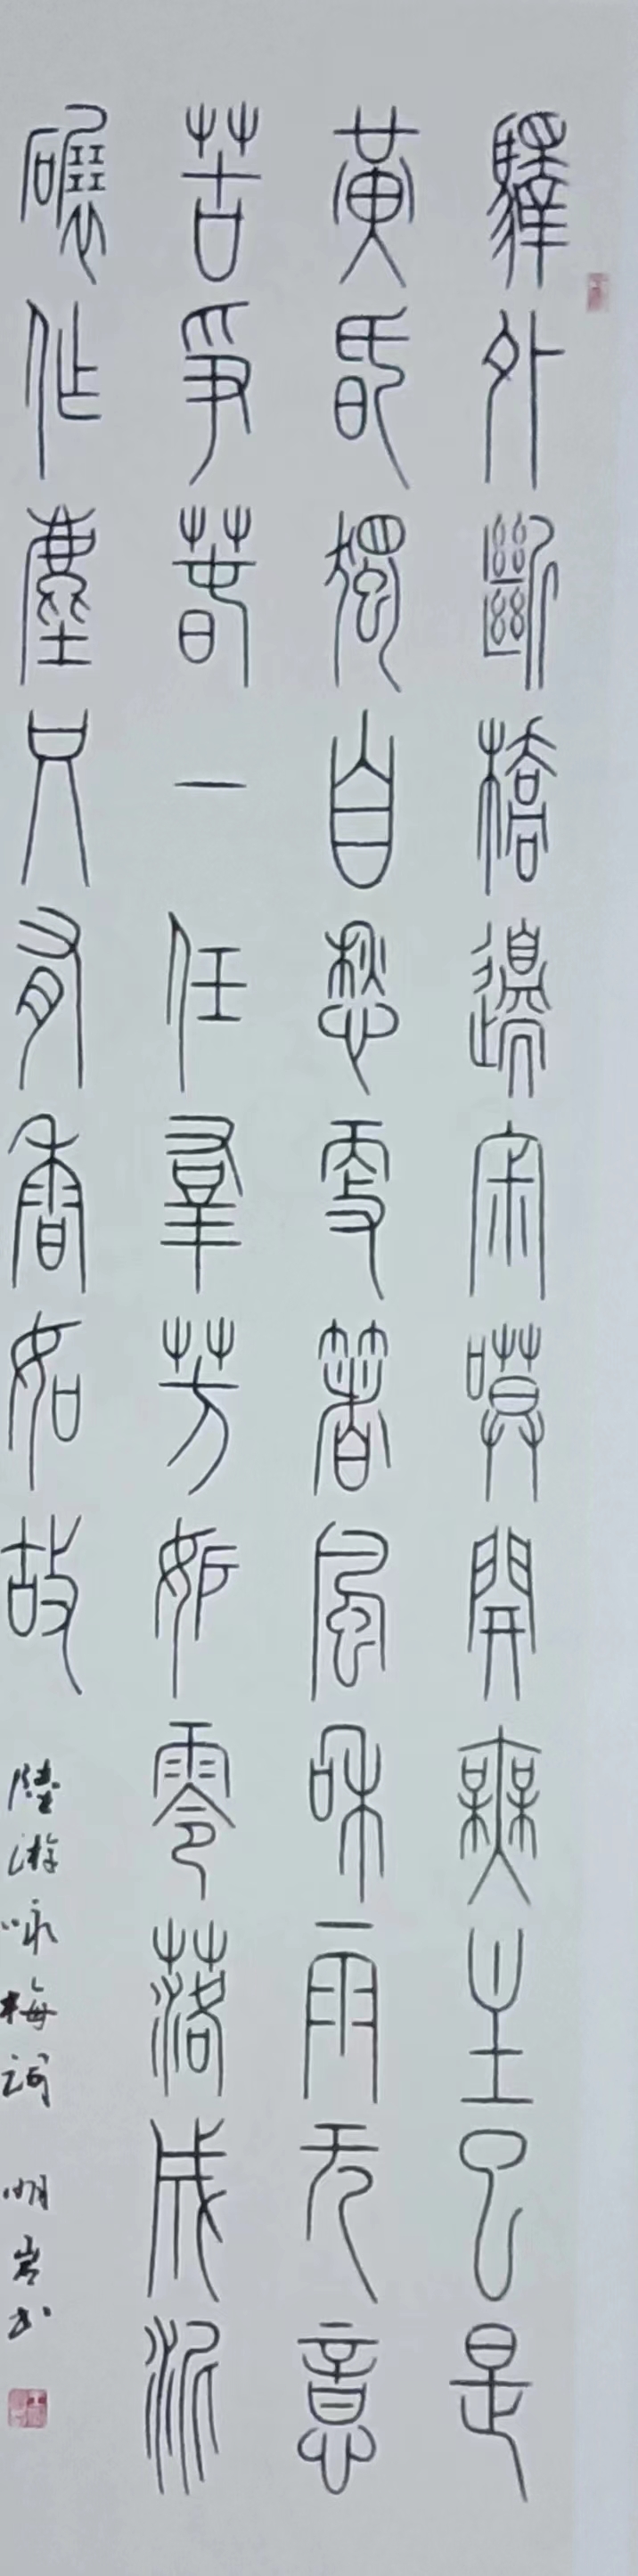 驛外斷橋邊寂嗼開無主已是
黃昏獨自愁更箸風咊雨无意
苦爭春一任羣芳妒零落成泥
碾作塵只有香如故
陸游咏梅詞 明岩书